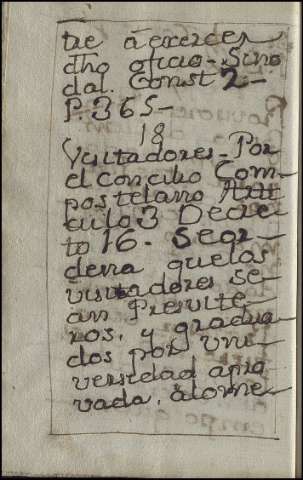 tre á exercer
dho oficio - Sino
dal. Const 2 -
P. 365 -
18
Visitadores - Por
el concilio Com-
postelano Arti
culo 3 Decre-
to 16 - Se or-
dena que los
visitadores se-
an Presvite-
ros, y gradua
dos por uni-
versidad apro
vada, álome